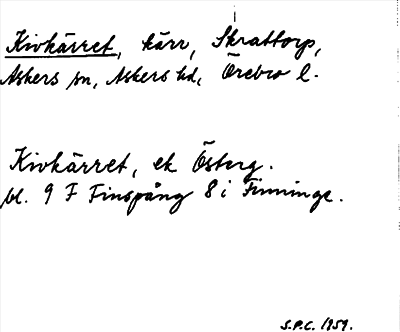 Kivkärret, kärr, Skrattorp,
Askers sn, Askers hd, Örebro l.
Kivkärret, ek Österg.
bl. 9 F Finspång 8 i Finninge.
S.P.C. 1959.